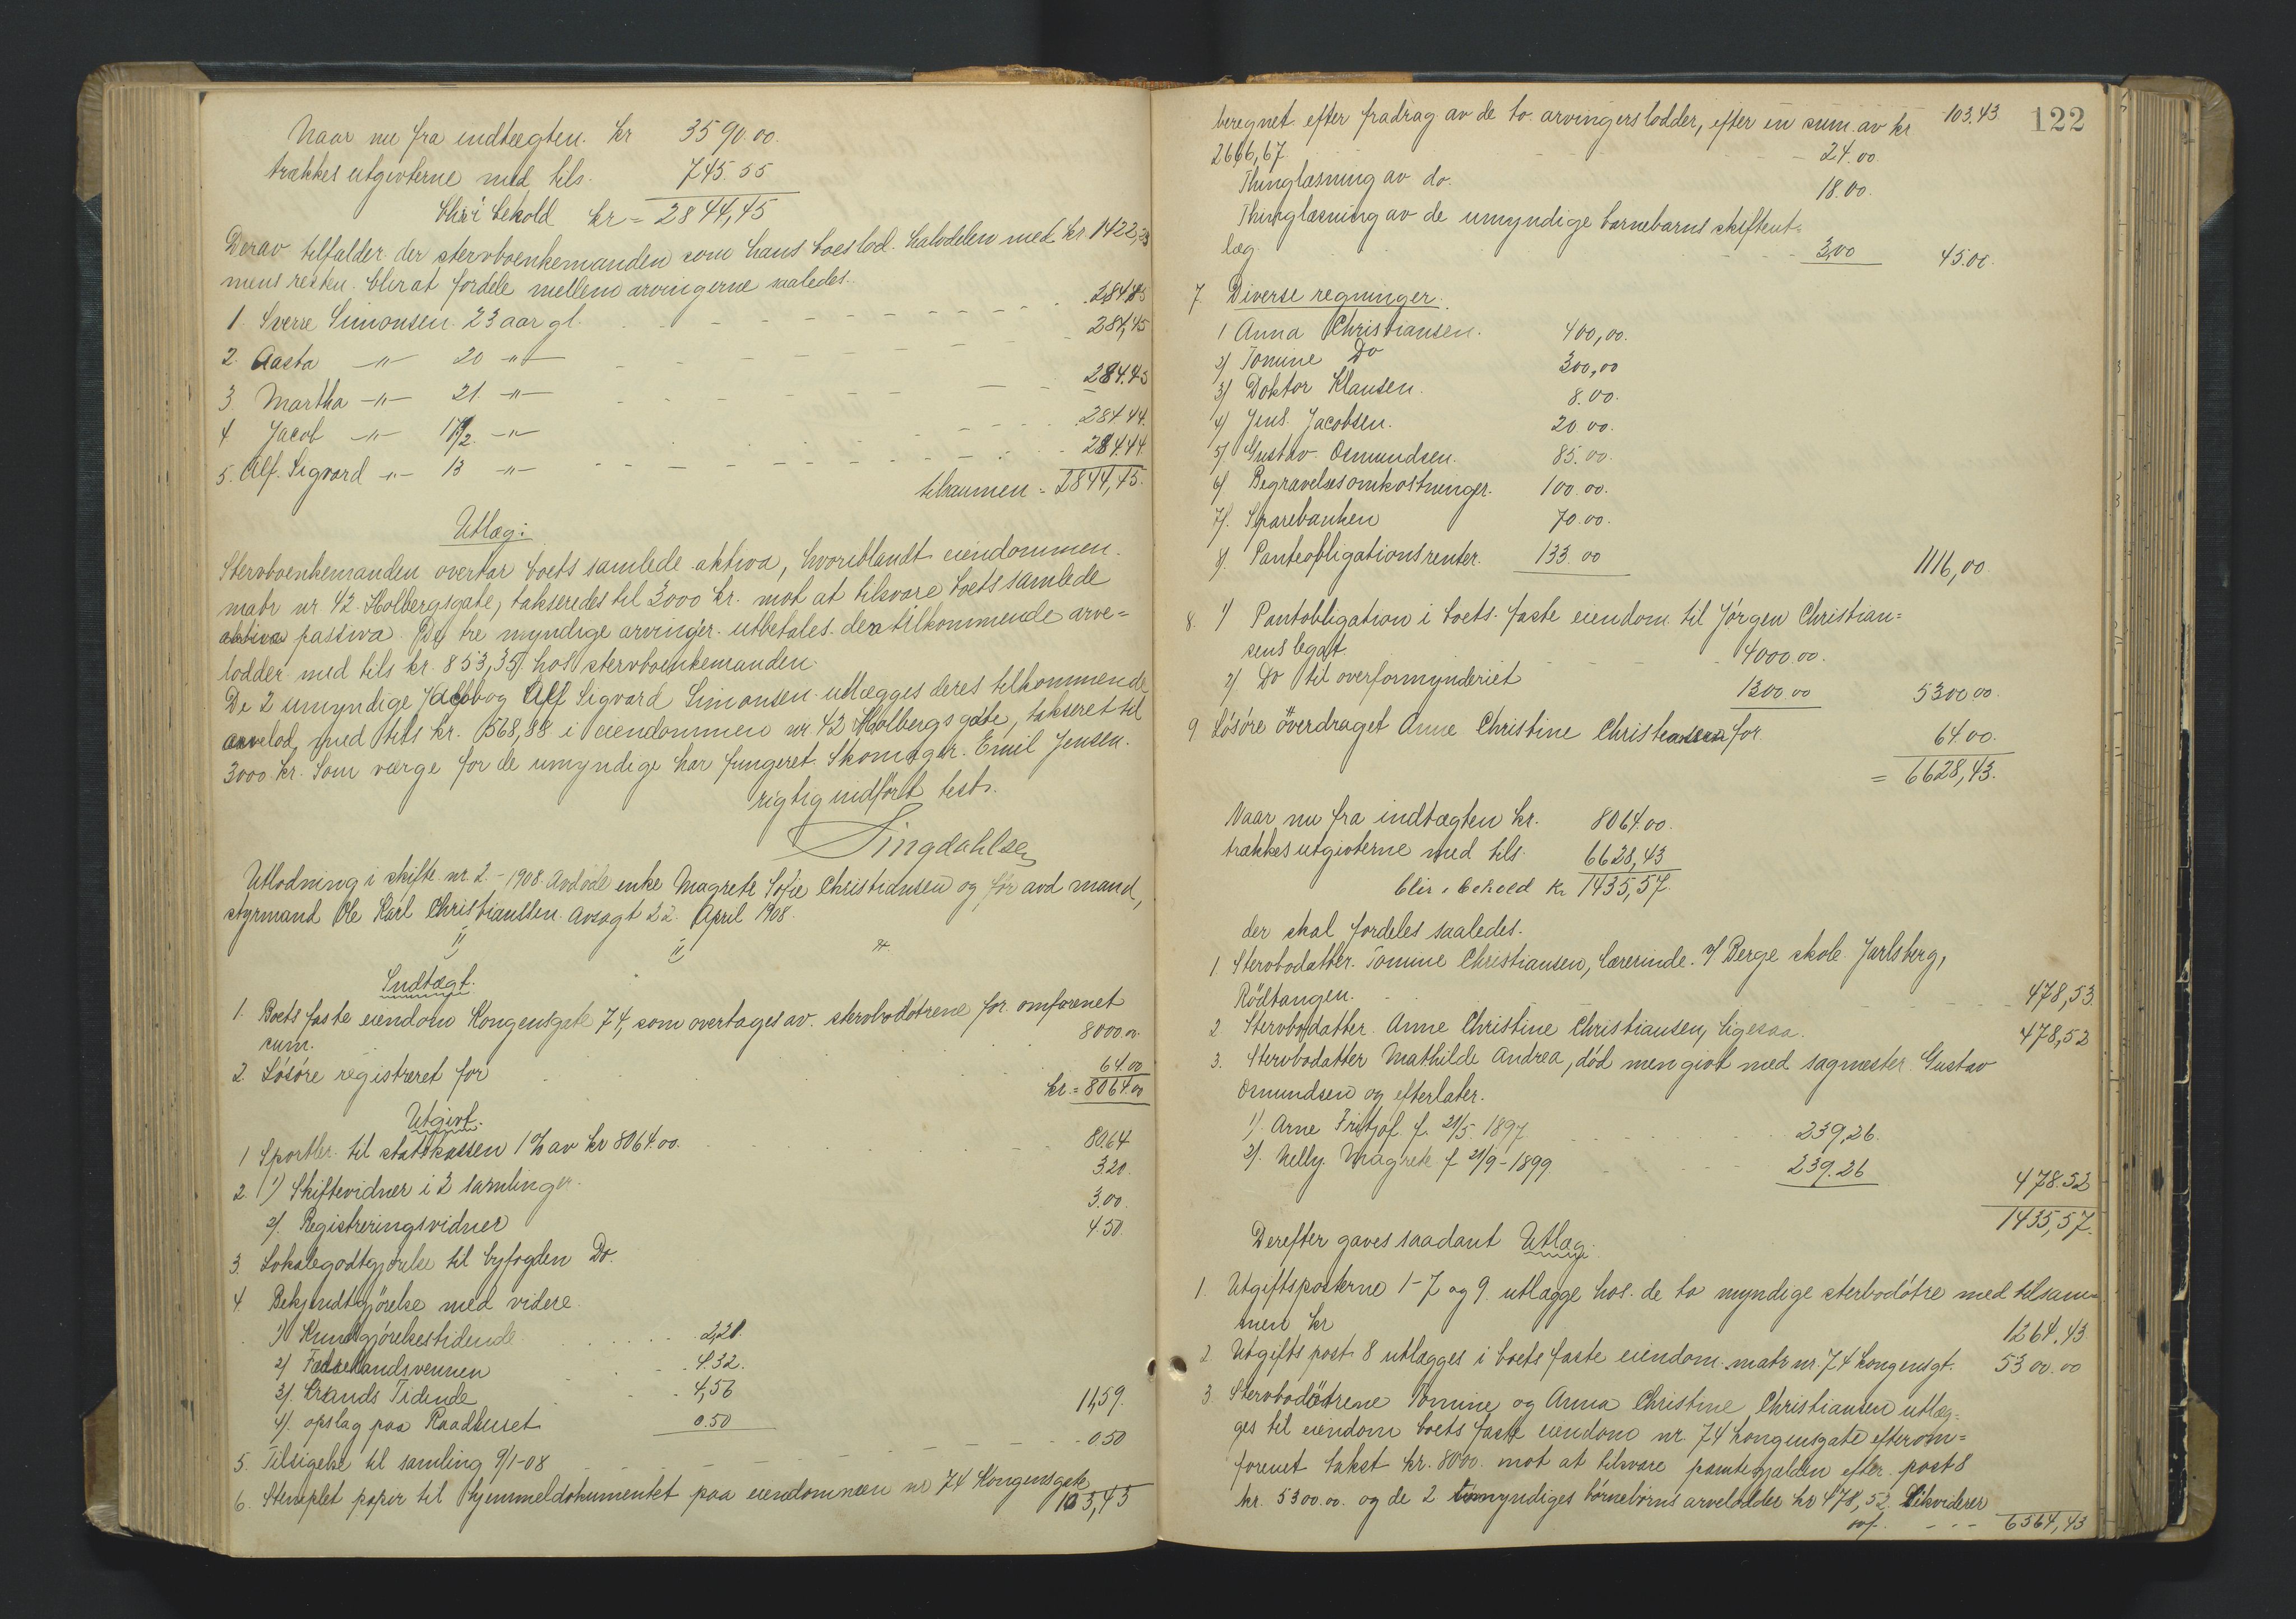 Naar nu fra indtægten kr 3590.00.
trækkes utgivterne med tils. 745.55
blir i behold kr = 2844,45
Derav tilfalder der stervboenkemanden som hans boeslod halvdelen med kr 1422,23
mens resten blir at fordele mellem arvingerne saaledes.
1. Sverre Simonsen 23 aar gl. 284,45
2. Aasta -"- 20 -"- 284,45
3 Martha -"- 21 -"- 284.45
4 Jacob -"- 17 1/2 -"- 284 44.
5. Alf. Sigvard -"- 13 -"- 284.44
tilsammen = 2844,45.
Utlæg:
Stervboenkemanden overtar boets samlede aktiva, hvoriblandt eiendommen
matr nr. 42 Holbergsgate, takseredes til 3000 kr. mot at tilsvare boets samlede
aktiva passiva. De tre myndige arvinger utbetales den tilkommende arve=
lodder med tils kr. 853,35 hos stervboenkemanden.
De 2 umyndige Jacob og Alf Sigvard Simonsen utlægges deres tilkommende
arvelod, med tils kr. 568,88 i eiendommen nr 42 Holbergsgate, takseret til
3000 kr. Som værge for de umyndige har fungeret Skomager Emil Jensen.
rigtig indført test.
Singdahlsen
Utlodning i skifte nr. 2 - 1908. Avdøde enke Magrete Sofie Christiansen og før avd mand,
styrmand Ole Karl Christiansen. Avsagt 22. April 1908.
" " "
Indtægt.
1. Boets faste eiendom Kongensgate 74, som overtages av stervbodøtrene for omforenet
sum. 8000.00
2 Løsøre registreret for 64.00
kr. = 8064.00
Utgivt.
1 Sportler til statskassen 1 % av kr 8064.00. 80,64
2. 1) Skiftevidner i 2 samlinger. 3.20.
2). Registreringsvidner 3.00.
3. Lokalegodtgjørelse til byfogden Do. 4.50.
4. Bekjendtgjørelse med videre
1) Kundgjørelsestidende 2,21.
2) Fædrelandsvennen 4.32.
3). Krands Tidende 4,56
4). opslag paa Raadhuset 0.50 11,59.
5. Tilsigelse til samling 9/1-08 0.50
6. Stemplet papir til hjemmeldokumentet paa eiendommen nr 74 Kongensgate
103,43
122
beregnet efter fradrag av de to arvingers lodder, efter en sum av kr 103.43
2666,67. 24.00.
Thinglæsning av do. 18.00.
Thinglæsning av de umyndige barnebarns skifteut=
læg 3,00 45.00.
7. Diverse regninger.
1 Anna Christiansen. 400,00.
2) Tomine Do 300,00
3) Doktor Klausen. 8.00.
4) Jens Jacobsen. 20 00.
5) Gustav Osmundsen. 85.00.
6). Begravelsesomkostninger. 100.00.
7). Sparebanken 70.00.
8). Panteobligationsrenter. 133.00 1116,00.
8. 1) Pantobligation i boets faste eiendom til Jørgen Christian=
sens legat. 4000.00.
2) Do til overformynderiet 1300 00 5300.00.
9 Løsøre överdraget Anne Christine Christiansen for 64.00.
= 6628,43.
Naar nu fra indtægten kr. 8064.00.
trækkes utgivterne med tils. 6628,43
blir i behold kr 1435,57.
der skal fordeles saaledes.
1. Stervbodatter. Tomine Christiansen, lærerinde. Berge skole Jarlsberg,
Rödtangen. 478,53.
2 Stervbodatter Anne Christine Christiansen, ligesaa. 478,52
3. Stervbodatter Mathilde Andrea, död men givt med sagmester Gustav
Osmundsen og efterlater.
1). Arne Fritjof f. 21/5. 1897. 239,26.
2). Nelly Magrete f 21/9-1899. 239.26 478.52
1435,57.
Derefter gaves saadant Utlæg.
1. Utgiftsposterne 1-7 og 9 utlægge hos de to myndige sterbodötre med tilsam=
men kr 1264,43.
2 Utgiftspost 8 utlægges i boets faste eiendom matr nr. 74 Kongensgt. 5300.00
3. Stervbodötrene Tomine og Anna Christine Christiansen utlæg=
ges til eiendom boets faste eiendom nr. 74 Kongensgate efter om=
forenet takst kr. 8000. mot at tilsvare pantegjælden efter post 8
kr. 5300.00. og de 2 umyndiges börnebörns arvelodder kr 478,52. Likviderer
ovf. 6564,43